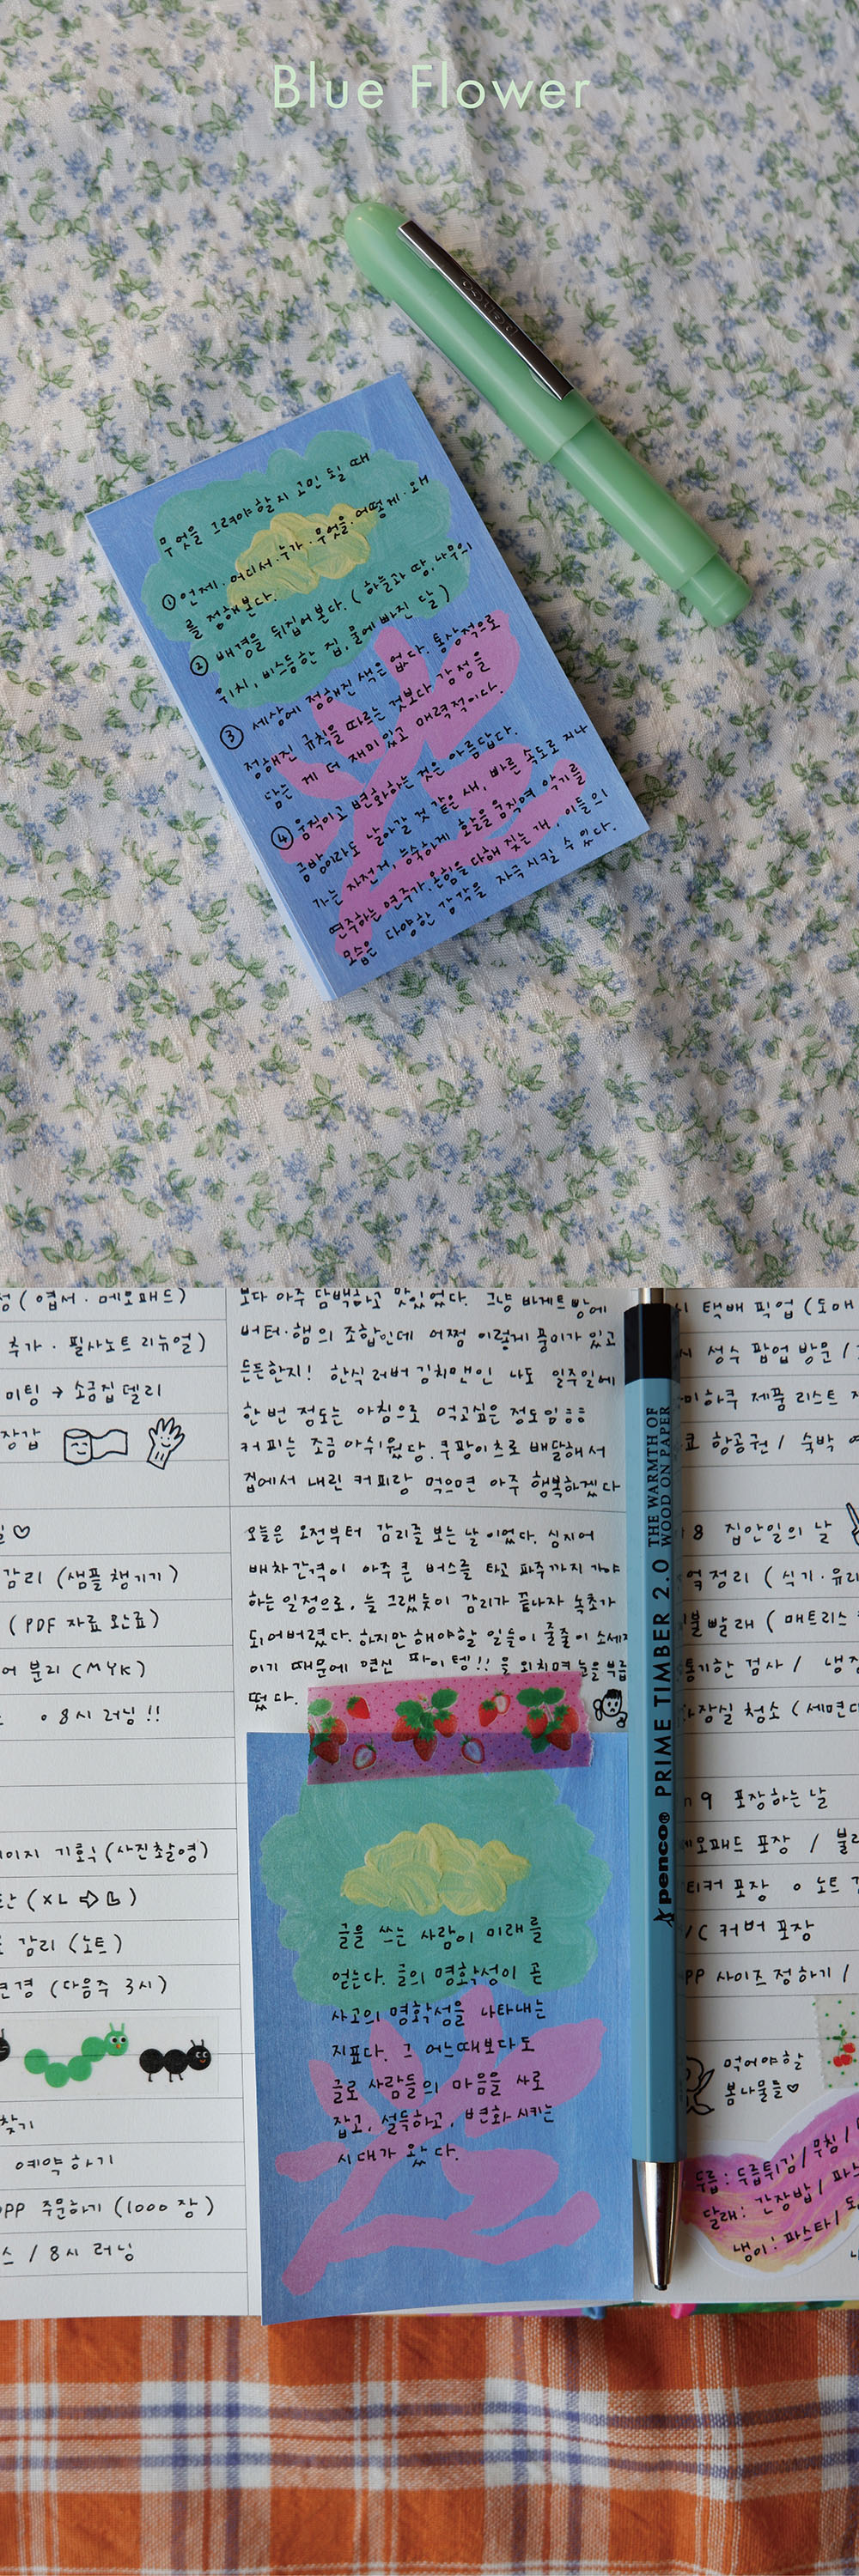 Blue Flower
penco
무엇을 그려야할지 고민 될 때
① 언제·어디서·누가·무엇을·어떻게·왜
를 정해본다.
② 배경을 뒤집어본다. ( 하늘과 땅, 나무의
위치, 비스듬한 집, 물에 빠진 달 )
③ 세상에 정해진 색은 없다. 통상적으로
정해진 규칙을 따르는 것보다 감정을
담는 게 더 재미있고 매력적이다.
④ 움직이고 변화하는 것은 아름답다.
금방이라도 날아갈 것 같은 새, 빠른 속도로 지나
가는 자전거, 능숙하게 활을 움직여 악기를
연주하는 연주가, 온힘을 다해 짖는 개, 이들의
모습은 다양한 감각을 자극 시킬 수 있다.
(엽서·메모패드)
추가·필사노트 리뉴얼)
미팅 → 소금집델리
장갑
♡
감리 (샘플 챙기기)
(PDF 자료 완료)
분리 (MYK)
○ 8시 러닝 !!
기획 (사진촬영)
(XL ⇨ L)
감리 (노트)
변경 (다음주 3시)
찾기
예약하기
OPP 주문하기 (1000장)
/ 8시 러닝
보다 아주 담백하고 맛있었다. 그냥 바게트빵에
버터·햄의 조합인데 어쩜 이렇게 풍미가 있고
든든한지! 한식러버 김치맨인 나도 일주일에
한번 정도는 아침으로 먹고싶은 정도임ㅎㅎ
커피는 조금 아쉬웠담. 쿠팡이츠로 배달해서
집에서 내린 커피랑 먹으면 아주 행복하겠다
오늘은 오전부터 감리를 보는 날이었다. 심지어
배차간격이 아주 큰 버스를 타고 파주까지 가야
하는 일정으로, 늘 그랬듯이 감리가 끝나자 녹초가
되어버렸다. 하지만 해야할 일들이 줄줄이 소세지
이기 때문에 연신 파이텡!! 을 외치며 눈을 부릅
떴다.
글을 쓰는 사람이 미래를
얻는다. 글의 명확성이 곧
사고의 명확성을 나타내는
지표다. 그 어느때보다도
글로 사람들의 마음을 사로
잡고, 설득하고, 변화 시키는
시대가 왔다.
penco® PRIME TIMBER 2.0 THE WARMTH OF
WOOD ON PAPER
택배 픽업 (도매
성수 팝업 방문 /
제품 리스트
항공권 / 숙박
8 집안일의 날
정리 ( 식기·유리
빨래 ( 매트리스
검사 / 냉장
화장실 청소 (세면대
9 포장하는 날
메모패드 포장 /
포장 ○ 노트
/C 커버 포장
OPP 사이즈 정하기 /
먹어야할
봄나물들♡
두릅: 두릅튀김/무침/
달래: 간장밥/
냉이: 파스타/